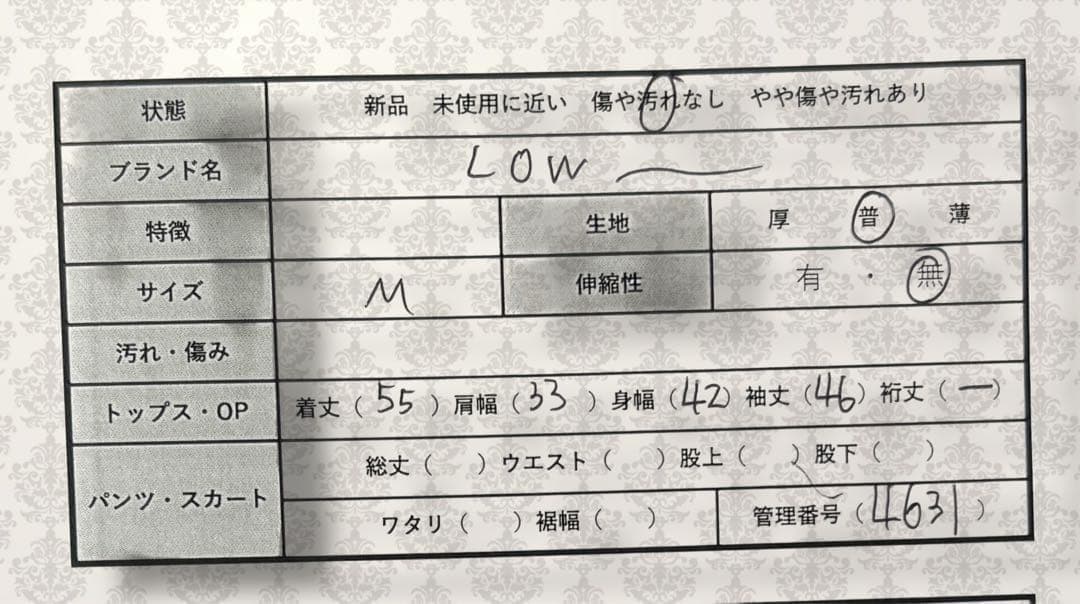 状態 新品 未使用に近い 傷や汚れなし やや傷や汚れあり
ブランド名 LOW
特徴 生地 厚 普 薄
サイズ M 伸縮性 有 ・ 無
汚れ・傷み
トップス・OP 着丈（55）肩幅（33）身幅（42）袖丈（46）裄丈（ー）
パンツ・スカート 総丈（ ）ウエスト（ ）股上（ ）股下（ ）
ワタリ（ ）裾幅（ ） 管理番号（4631）